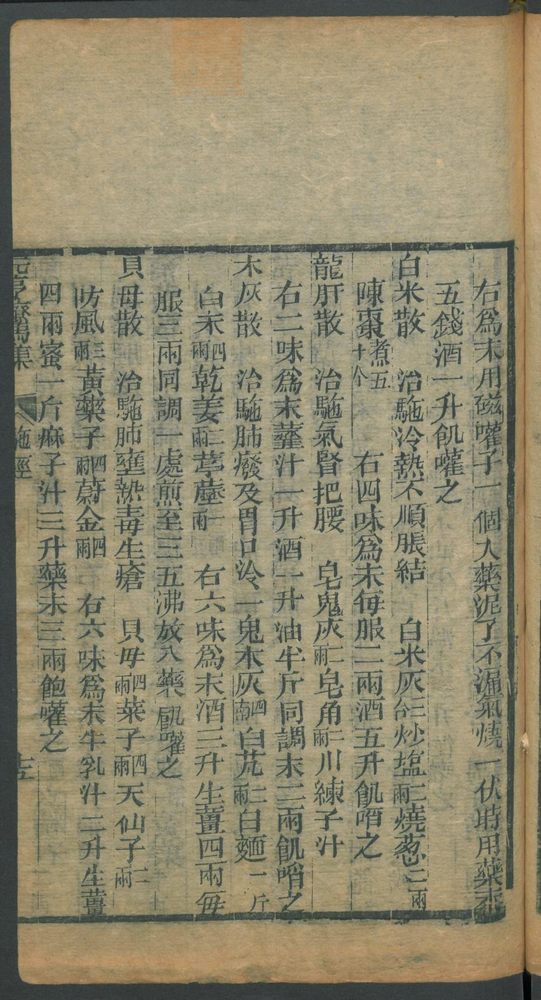 右為末用磁嚾子一個入藥泥了不漏氣燒一伏時用藥末
五錢酒一升飢嚾之
白米散 治駞冷熱不順脹結 白米灰三合炒塩二兩燒葱三兩
陳棗煮五十个 右四味為末每服二兩酒五升飢啗之
龍肝散 治駞氣腎把腰 皂鬼灰二兩皂角二兩川練子汁
右二味為末薤汁一升酒一升油半斤同調末三兩飢啗之
木灰散 治駞肺癈及胃口冷一鬼木灰四兩白芃三兩白麵一斤
白米四兩乾姜二兩葶藶一兩 右六味為末酒三升生薑四兩每
服三兩同調一處煎至三五沸放入藥飢嚾之
貝母散 治駞肺壅熱毒生瘡 貝母四兩菜子四兩天仙子二兩
防風三兩黃藥子四兩蔚金四兩 右六味為末牛乳汁二升生薑
四兩蜜一斤麻子汁三升藥末三兩飽嚾之
駞經